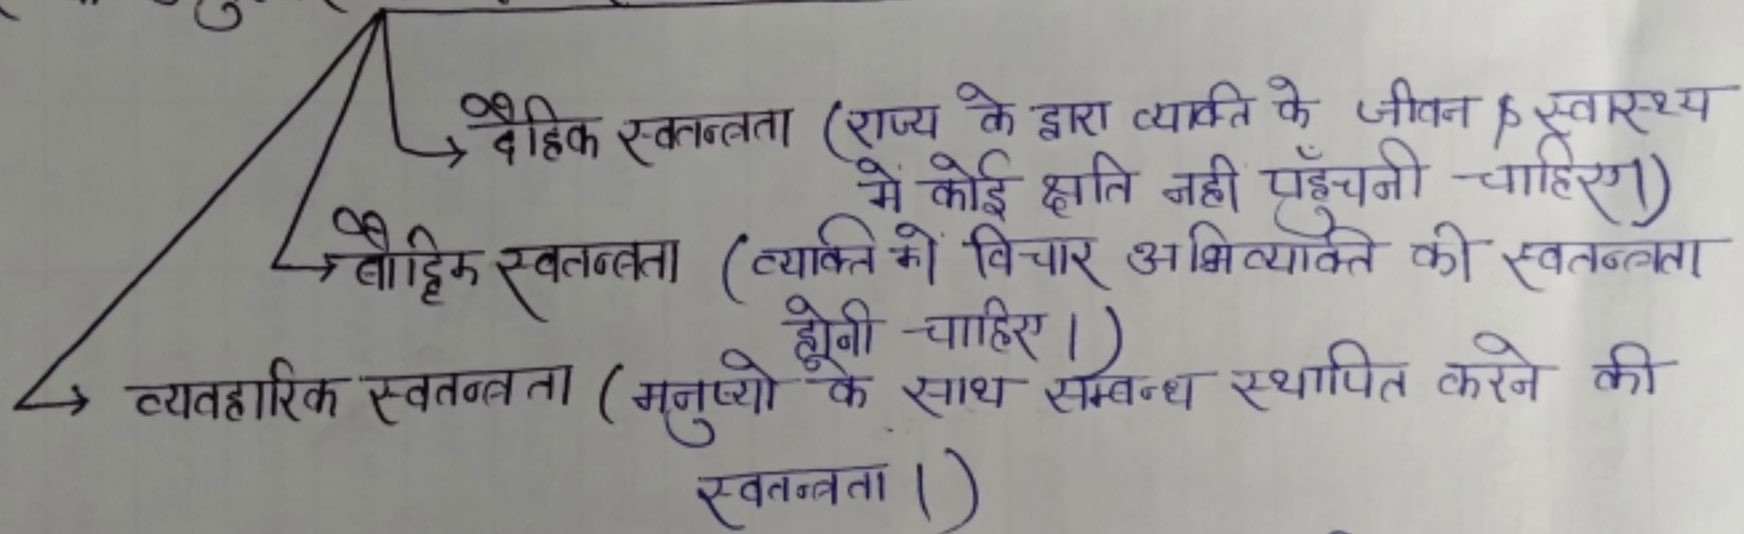 दैहिक स्वतन्त्रता (राज्य के द्वारा व्यक्ति के जीवन & स्वास्थ्य
में कोई क्षति नही पहुँचनी चाहिए।)
बौद्दिक स्वतन्त्रता (व्यक्ति को विचार अभिव्यक्ति की स्वतन्त्रता
होनी चाहिए।)
व्यवहारिक स्वतन्त्रता (मनुष्यो के साथ सम्बन्ध स्थापित करने की
स्वतन्त्रता।)